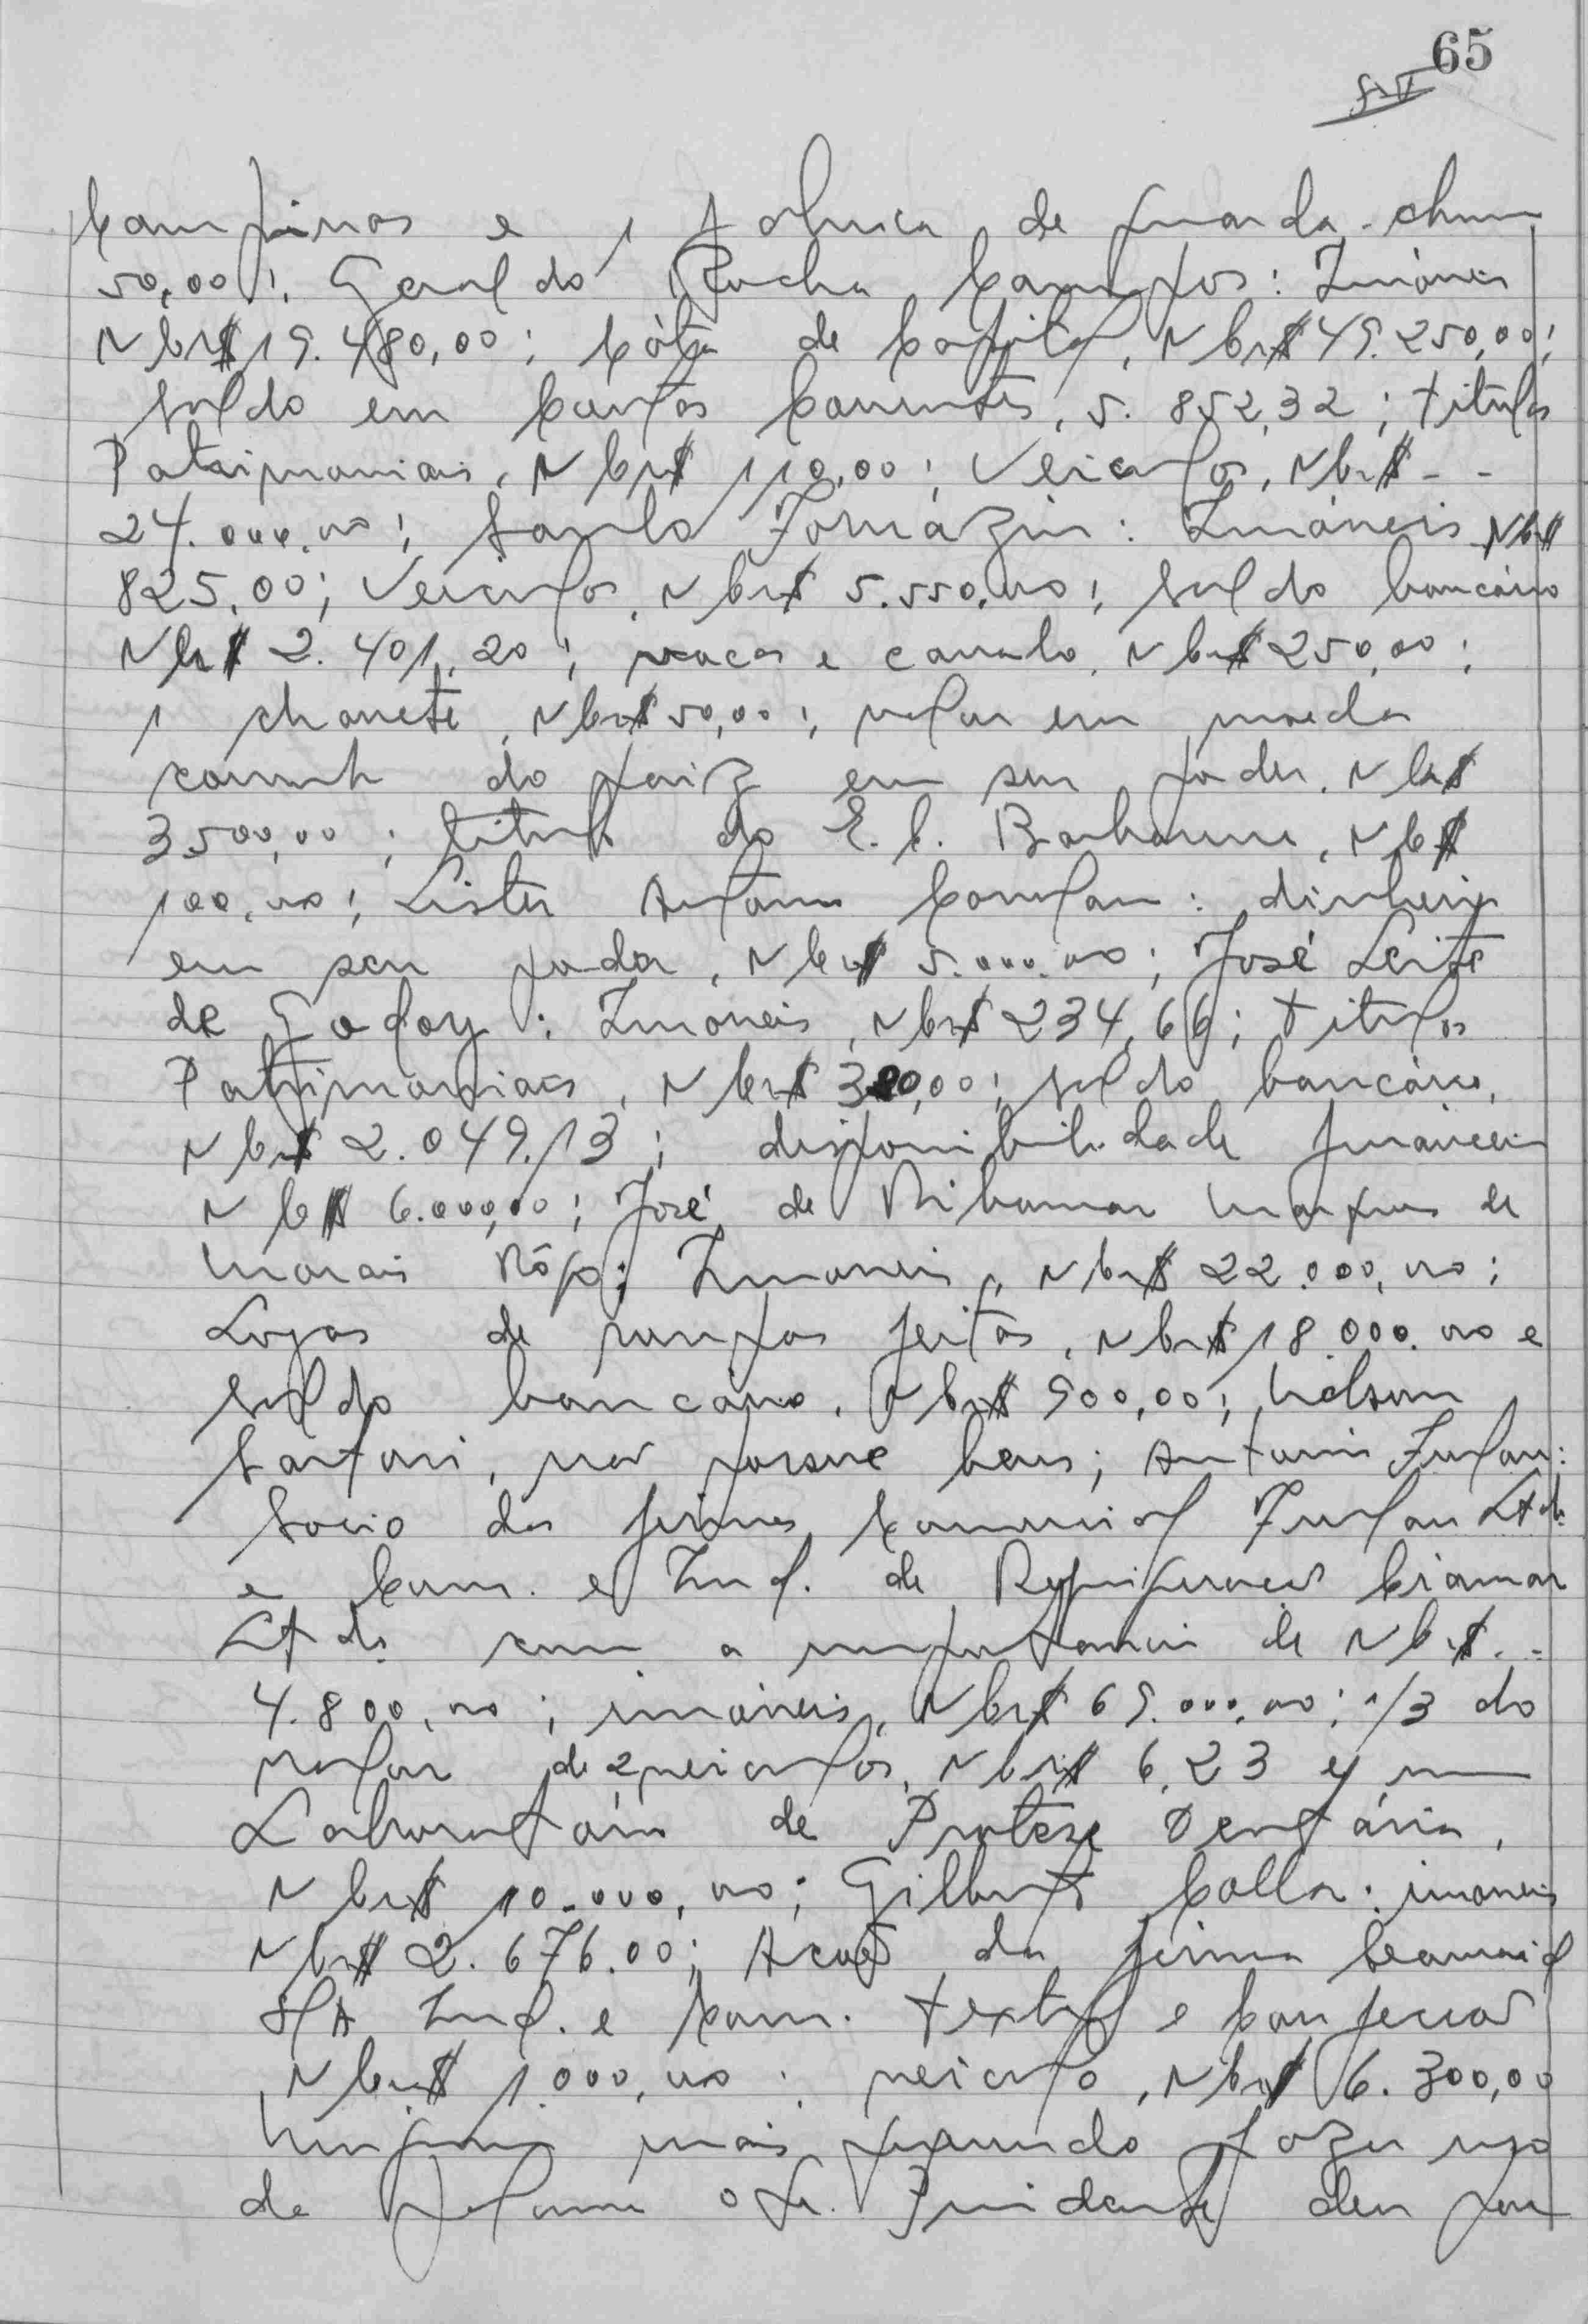 65
Campinas e 1 fabrica de guarda-chuva
50,00; Geraldo Rocha Campos: Imóveis
NCr$ 19.480,00; Cóta de Capital, NCr$ 49.250,00;
saldo em Contas Correntes, 5.852,32; titulos
Patrimoniais, NCr$ 110,00; Veiculos, NCr$ - -
24.000,00; Saulo Tomázin: Imóveis NCr$
825,00; Veiculos, NCr$ 5.550,00; saldo bancário
NCr$ 2.401,20; vacas e cavalo, NCr$ 250,00;
1 charrete, NCr$ 50,00; valor em moeda
corrente do paiz em seu poder, NCr$
3.500,00; titulo do E. C. Barbarense, NCr$
100,00; Lister Antonio : dinheiro
em seu poder, NCr$ 5.000,00; José Leite
de Godoy: Imoveis, NCr$ 234,66; titulos
Patrimoniais, NCr$ 300,00; saldo bancário,
NCr$ 2.049,13; disponibilidade financeira
NCr$ 6.000,00; José de Ribamar Marques de
Morais Rêgo; Imoveis, NCr$ 22.000,00;
Lojas de roupas feitas, NCr$ 18.000,00 e
saldo bancário, NCr$ 900,00; Nelson
Sartori, não possue bens; Antonio Furlan:
Socio das firmas Comercial Furlan Ltda
e Com. e Ind. de Refrigeração Criamar
Ltda com a importancia de NCr$ - =
4.800,00; imóveis, NCr$ 69.000,00; 1/3 do
valor de 2 veiculos, NCr$ 6,23 e um
Laboratório de Protese Dentária,
NCr$ 10.000,00; Gilberto Colla: imoveis
NCr$ 2.676,00; Ações da firma
S/A Ind. e Com. textil e confecção
NCr$ 1.000,00; veiculo, NCr$ 6.300,00
Ninguem mais querendo fazer uso
da palavra o Sr. Presidente deu por